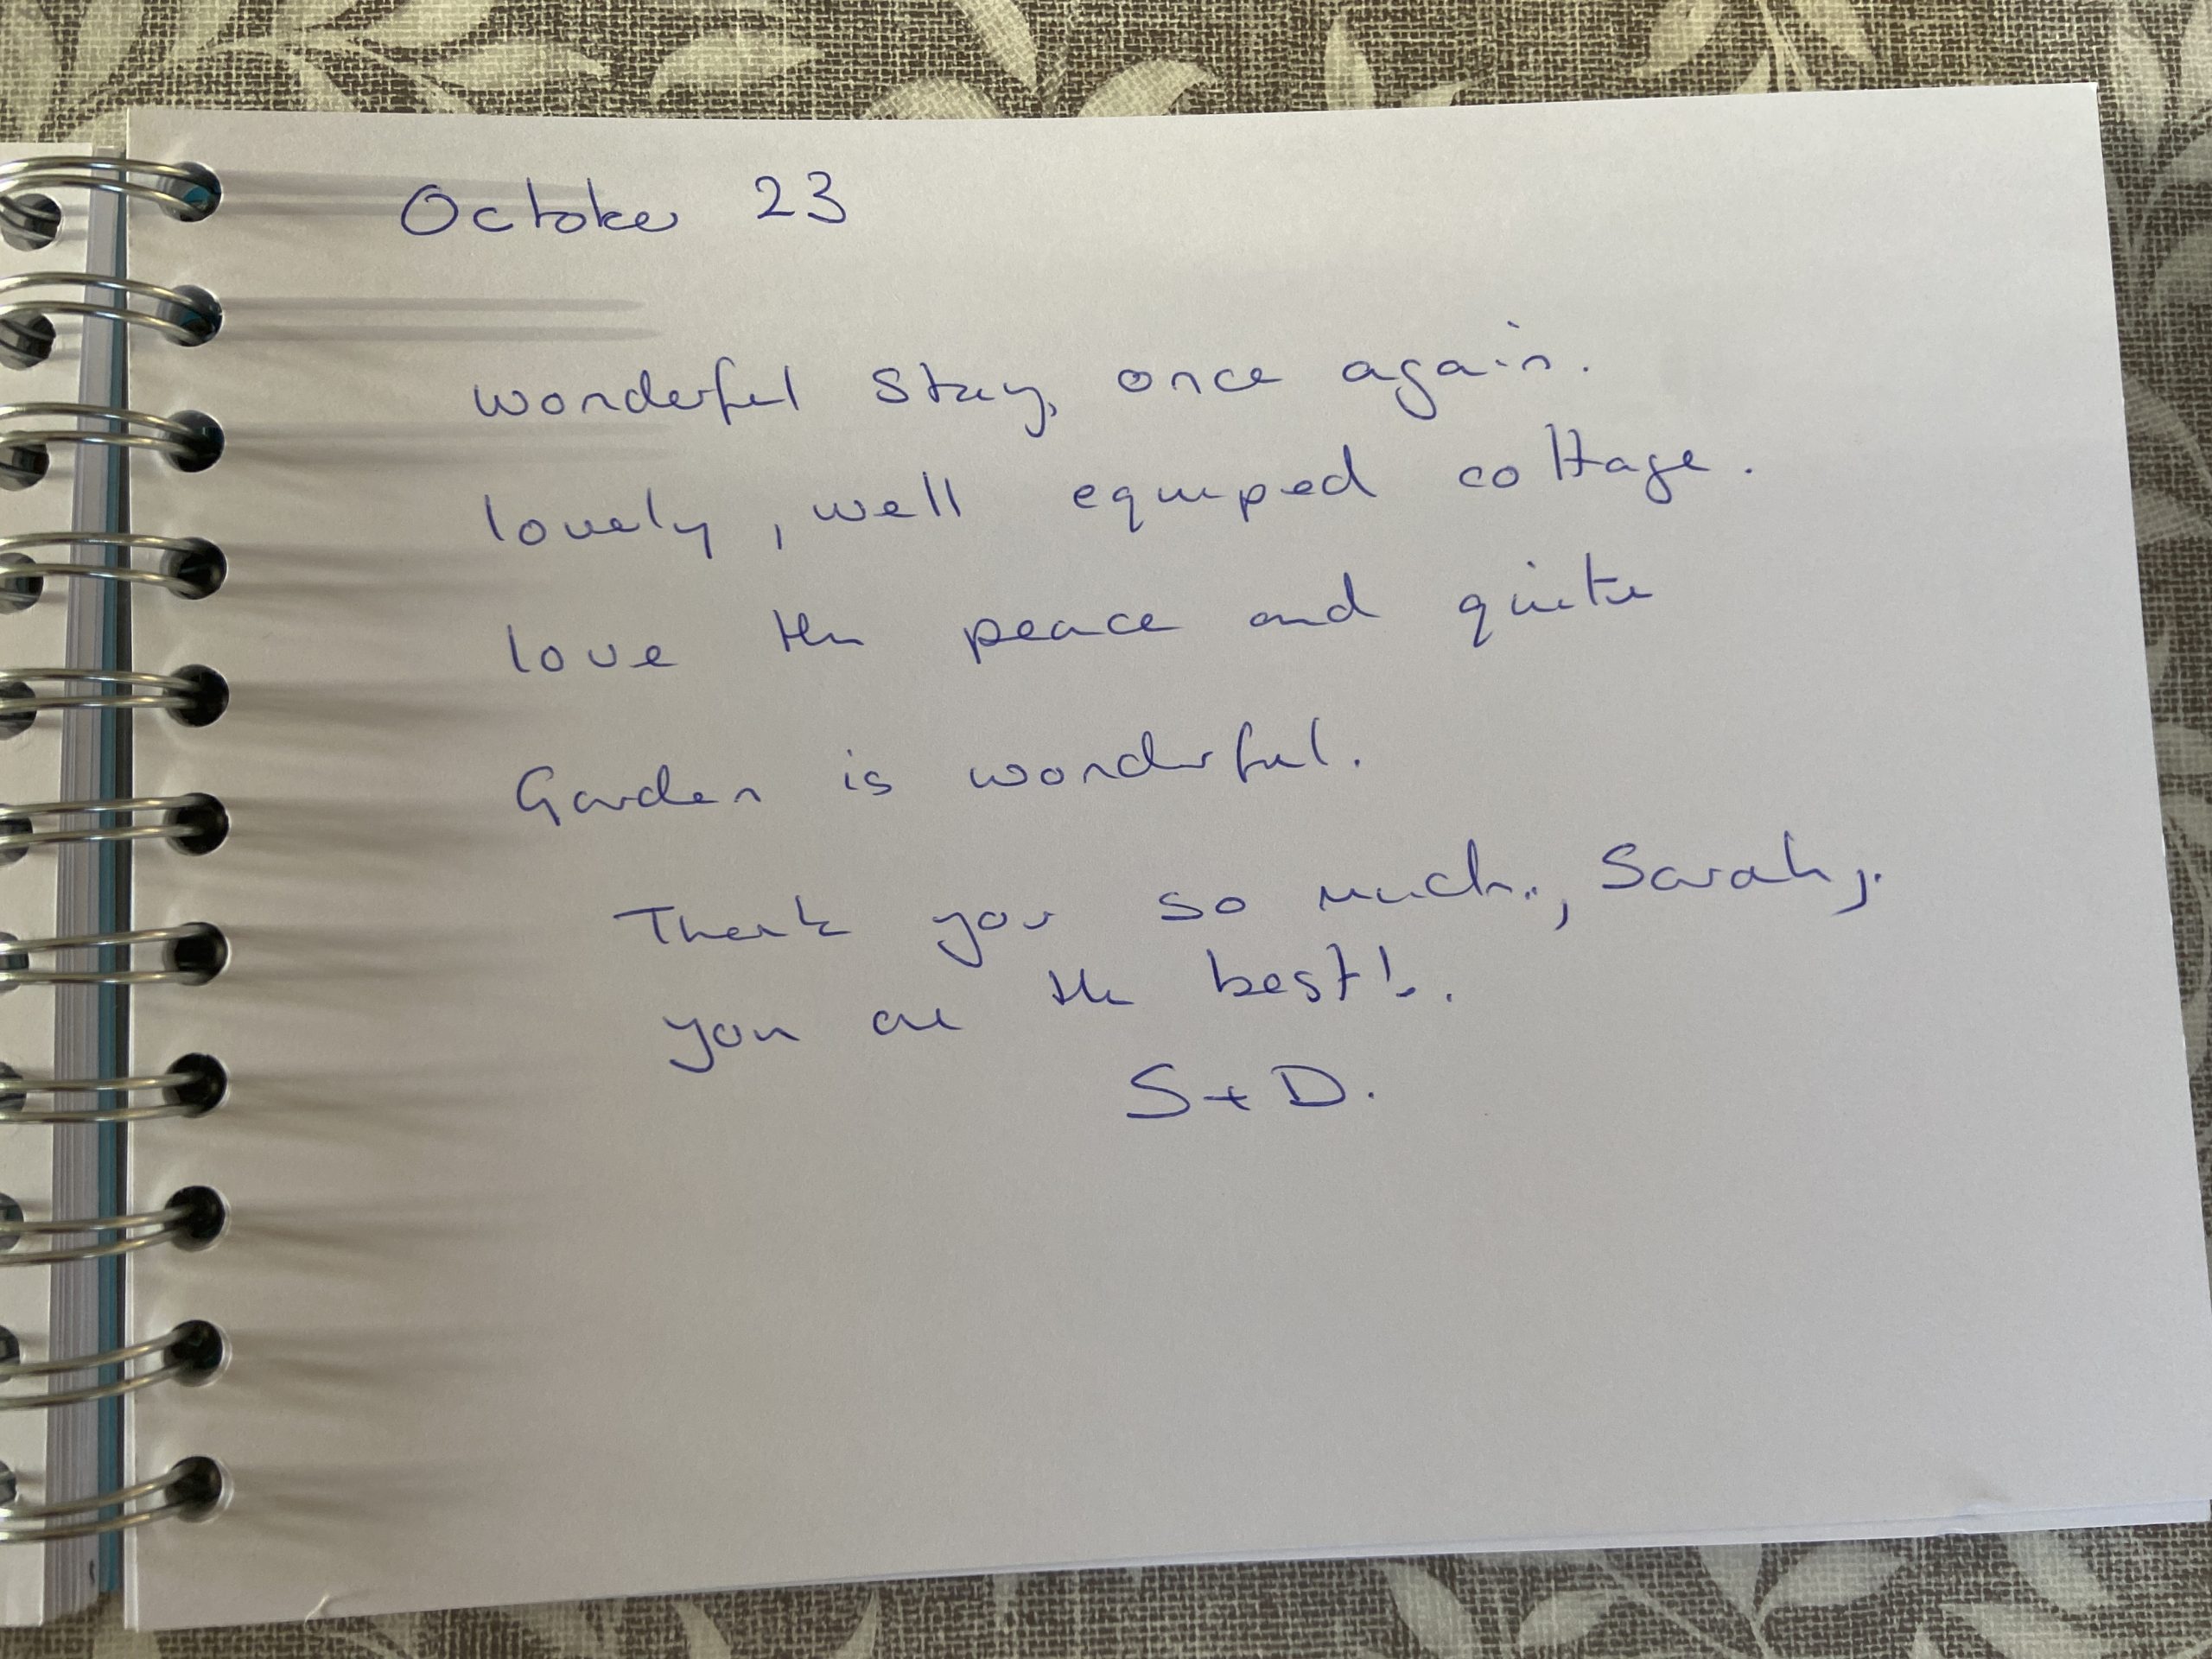 October 23
wonderful stay, once again.
lovely, well equiped cottage.
love the peace and quite
Garden is wonderful.
Thank you so much., Sarah,.
you are the best!.
S + D.